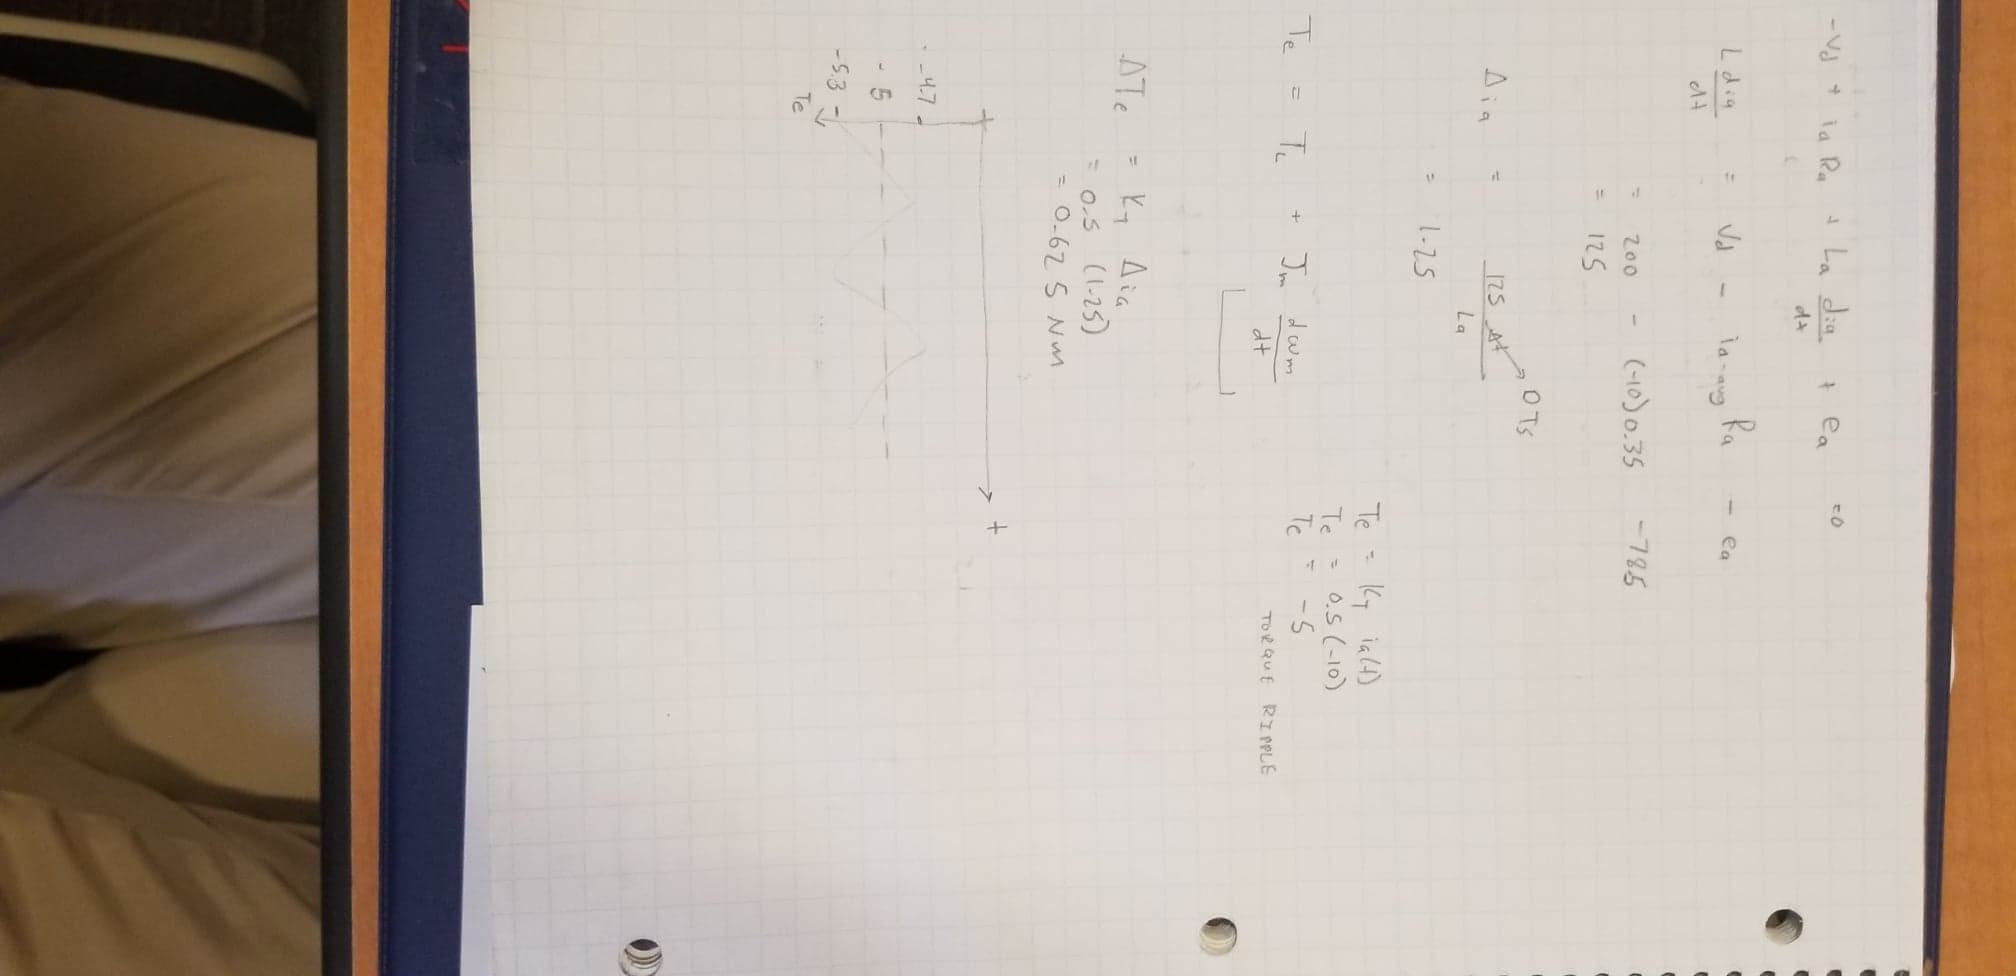 -Vd + ia Ra + La dia/dt + ea = 0
L dia/dt = Vd - ia-avg Ra - ea
= 200 - (-10)0.35 -785
= 125
DTs
Δia = 125 Δt / La
= 1.25
Te = KT ia(t)
Te = 0.5 (-10)
Te = -5
TORQUE RIPPLE
Te = TL + Jm dwm/dt
ΔTe = KT Δia
= 0.5 (1.25)
= 0.625 Nm
t
-4.7
-5
-5.3
Te